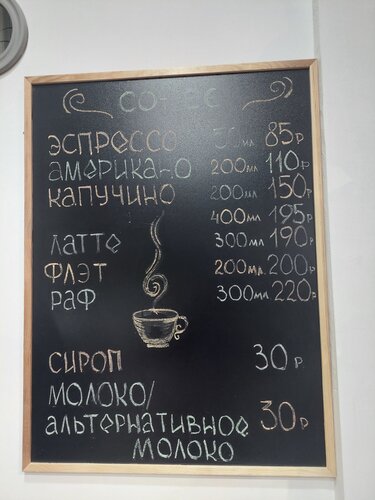 COFFEE
ЭСПРЕССО 30мл 85р
АМЕРИКАНО 200мл 110р
КАПУЧИНО 200мл 150р
400мл 195р
ЛАТТЕ 300мл 190р
ФЛЭТ 200мл 200р
РАФ 300мл 220р
СИРОП 30р
МОЛОКО/
АЛЬТЕРНАТИВНОЕ 30р
МОЛОКО